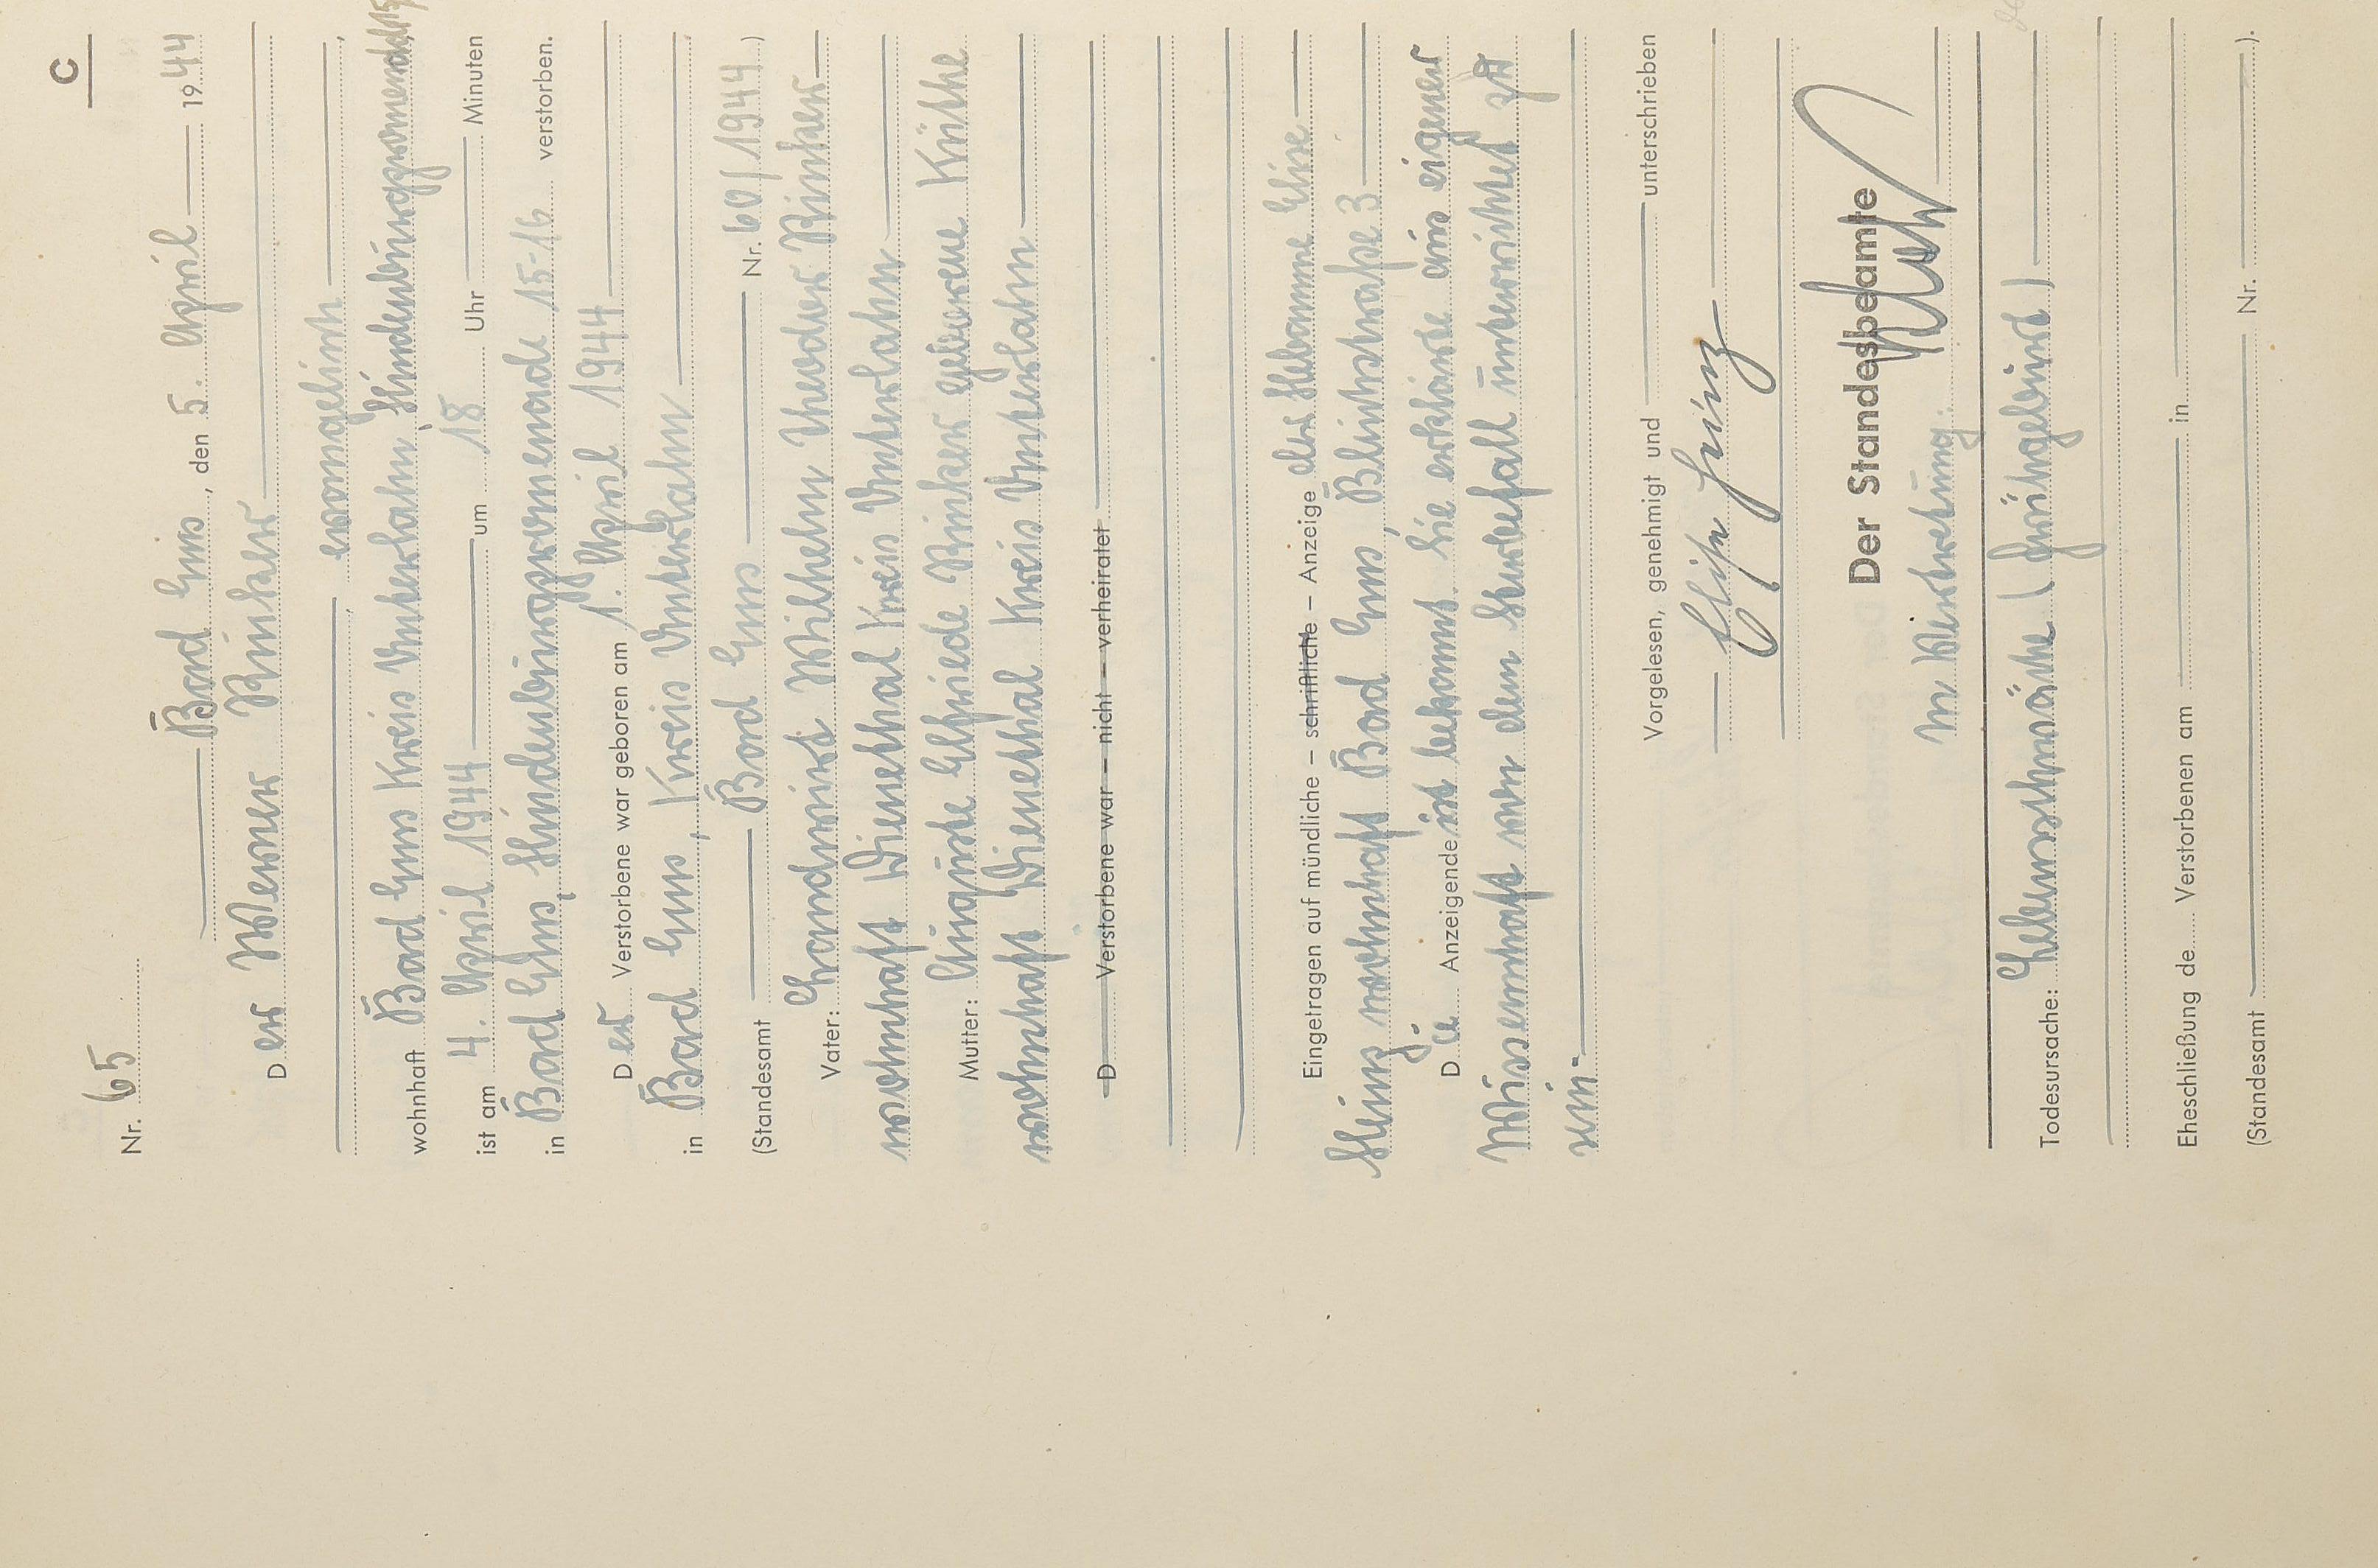 C
Nr. 65
Bad Ems, den 5. April 1944
Der Werner Rinker
, evangelisch,
wohnhaft Bad Ems Kreis Unterlahn, Hindenburgpromenade 15,
ist am 4. April 1944 um 18 Uhr Minuten
in Bad Ems, Hindenburgpromenade 15-16 verstorben.
Der Verstorbene war geboren am 1. April 1944
in Bad Ems, Kreis Unterlahn
(Standesamt Bad Ems Nr. 60/1944.)
Vater: Landwirt Wilhelm Theodor Rinker
wohnhaft Dienethal Kreis Unterlahn
Mutter: Auguste Elfriede Rinker geborene
wohnhaft Dienethal Kreis Unterlahn
D Verstorbene war – nicht – verheiratet
Eingetragen auf mündliche – schriftliche – Anzeige der Hebamme Elise
Heinz wohnhaft Bad Ems, 3
Die Anzeigende ist bekannt. Sie erklärte aus eigener
Wissenschaft von dem Sterbefall unterrichtet zu
sein.
Vorgelesen, genehmigt und unterschrieben
Elise Heinz
Der Standesbeamte
In Vertretung:
Todesursache: Lebensschwäche (Frühgeburt)
Eheschließung de Verstorbenen am in
(Standesamt Nr. ).